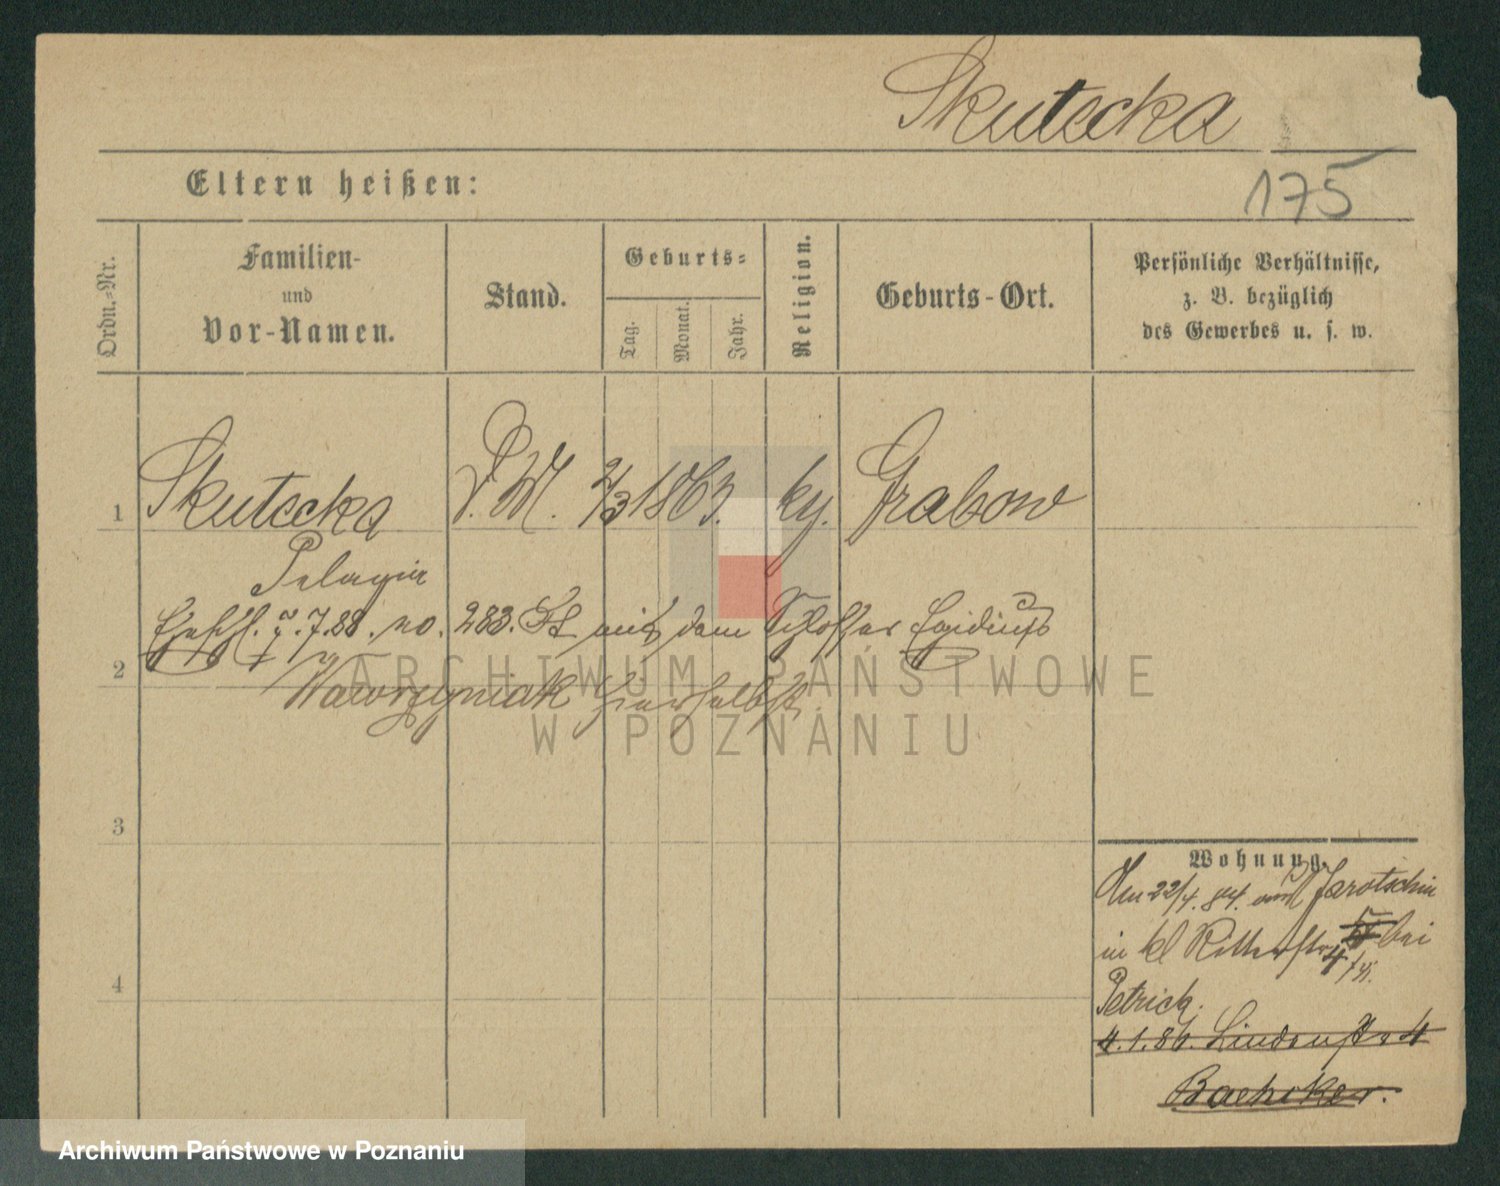 Skutecka
175
Eltern heißen:
Ordn.-Nr.
Familien-
und
Vor-Namen.
Stand.
Geburts-
Tag.
Monat.
Jahr.
Religion.
Geburts-Ort.
Persönliche Verhältnisse,
z. B. bezüglich
des Gewerbes u. s. w.
1 Skutecka D.M. 2/3 1863. kg. Grabow
Pelagia
Ehschl. 7.7.88. no. 283. mit dem Schlosser Egidius
2
Wawrzyniak hierselbst.
3
4
Wohnung.
Den 22/4. 84. aus Jarotschin
in kl Ritterstr 4 bei
Petrick.
4.1.86. Lindenstr 4
Baehcker.
ARCHIWUM PAŃSTWOWE
W POZNANIU
Archiwum Państwowe w Poznaniu